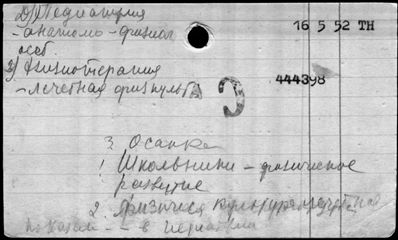 2) Педиатрия
16 5 52 TH
- анатомо - физиол
особ.
3) Физиотерапия
444398
- лечебная физкульт
3. Осанка
1. Школьники - физическое
развитие
2. Физическ культура
- в педиатрии